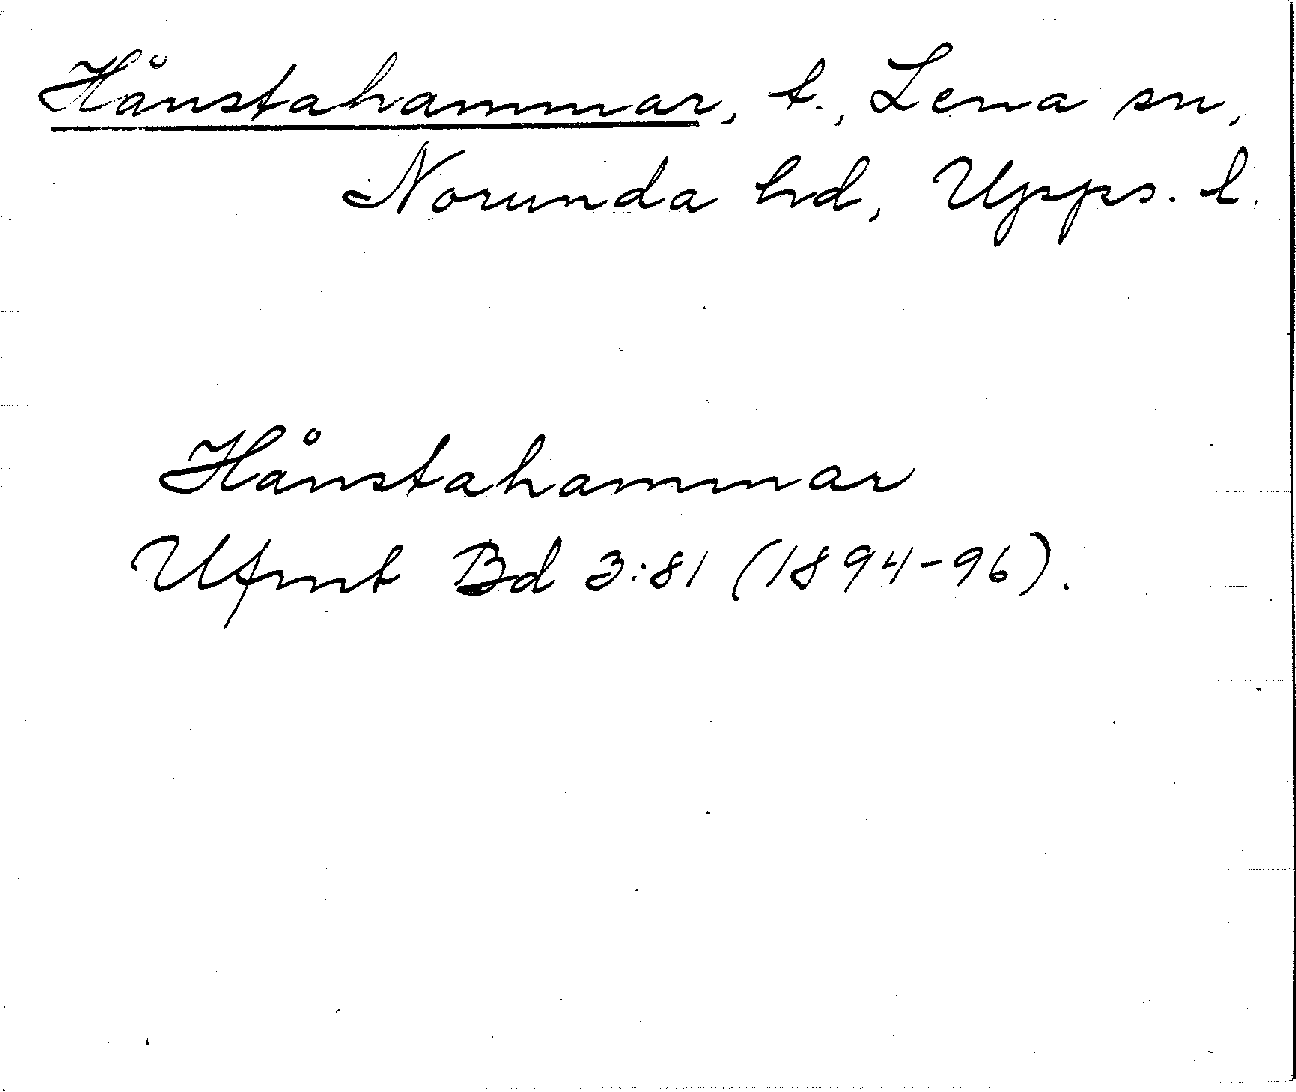 Hånstahammar, t., Lena sn,
Norunda hd, Upps. l.
Hånstahammar
Ufmt Bd 3:81 (1894-96).